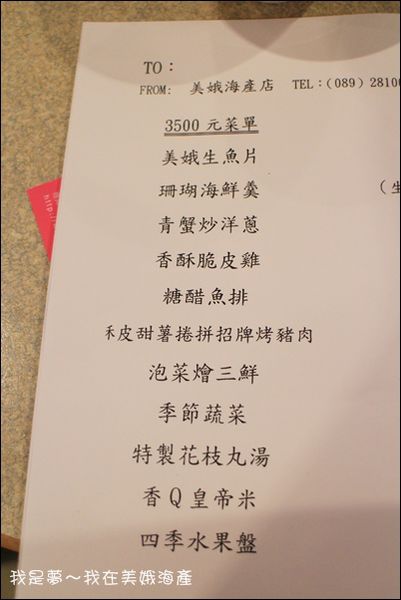 TO：
FROM: 美娥海產店 TEL：(089) 28100
3500 元菜單
美娥生魚片
珊瑚海鮮羹 (生
青蟹炒洋蔥
香酥脆皮雞
糖醋魚排
禾皮甜薯捲拼招牌烤豬肉
泡菜燴三鮮
季節蔬菜
特製花枝丸湯
香Q皇帝米
四季水果盤
我是夢～我在美娥海產